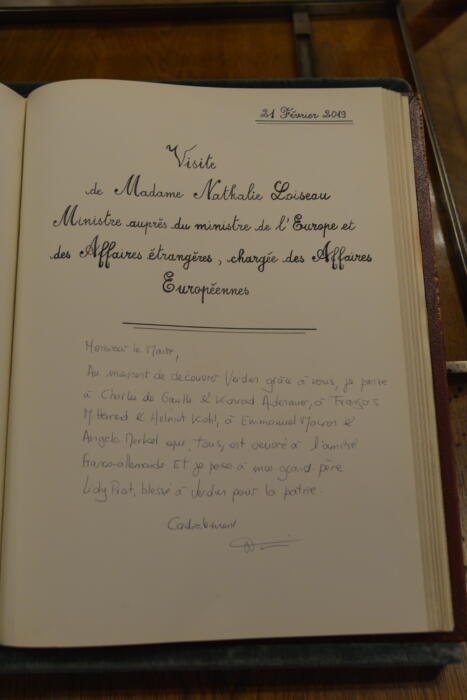 21 Février 2019
Visite
de Madame Nathalie Loiseau
Ministre auprès du ministre de l'Europe et
des Affaires étrangères, chargée des Affaires
Européennes
Monsieur le Maire,
Au moment de découvrir Verdun grâce à vous, je pense
à Charles de Gaulle & Konrad Adenauer, à François
Mitterrand & Helmut Kohl, à Emmanuel Macron &
Angela Merkel qui, tous, ont oeuvré à l'amitié
Franco-allemande. Et je pense à mon grand père
blessé à Verdun pour la patrie.
Cordialement